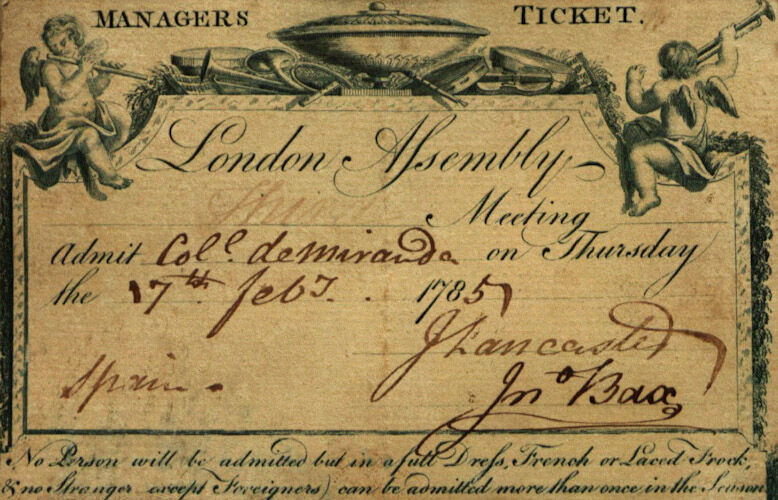 MANAGERS TICKET.
London Assembly
Meeting
Admit Coll. de Miranda on Thursday
the 17th feby. 1785
J Lancaster
Spain.
Jno Bax
No Person will be admitted but in a full Dress, French or Laced Frock,
& no Stranger except Foreigners) can be admitted more than once in the Season